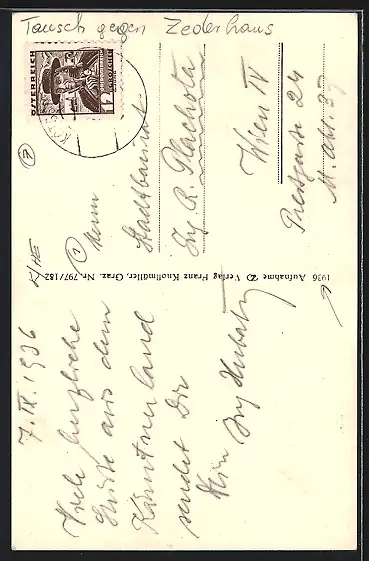 Tausch gegen Zederhaus
ÖSTERREICH
12
GROSCHEN
7. IX. 1936
Viele herzliche
Grüße aus dem
Kärntnerland
sendet Dir
Dein
1936 Aufnahme Verlag Franz Knollmüller, Graz. Nr. 797/182
Herrn
Stadtbaurat
Ing. R. Plachota
Wien IV
24
M. Abt. 37